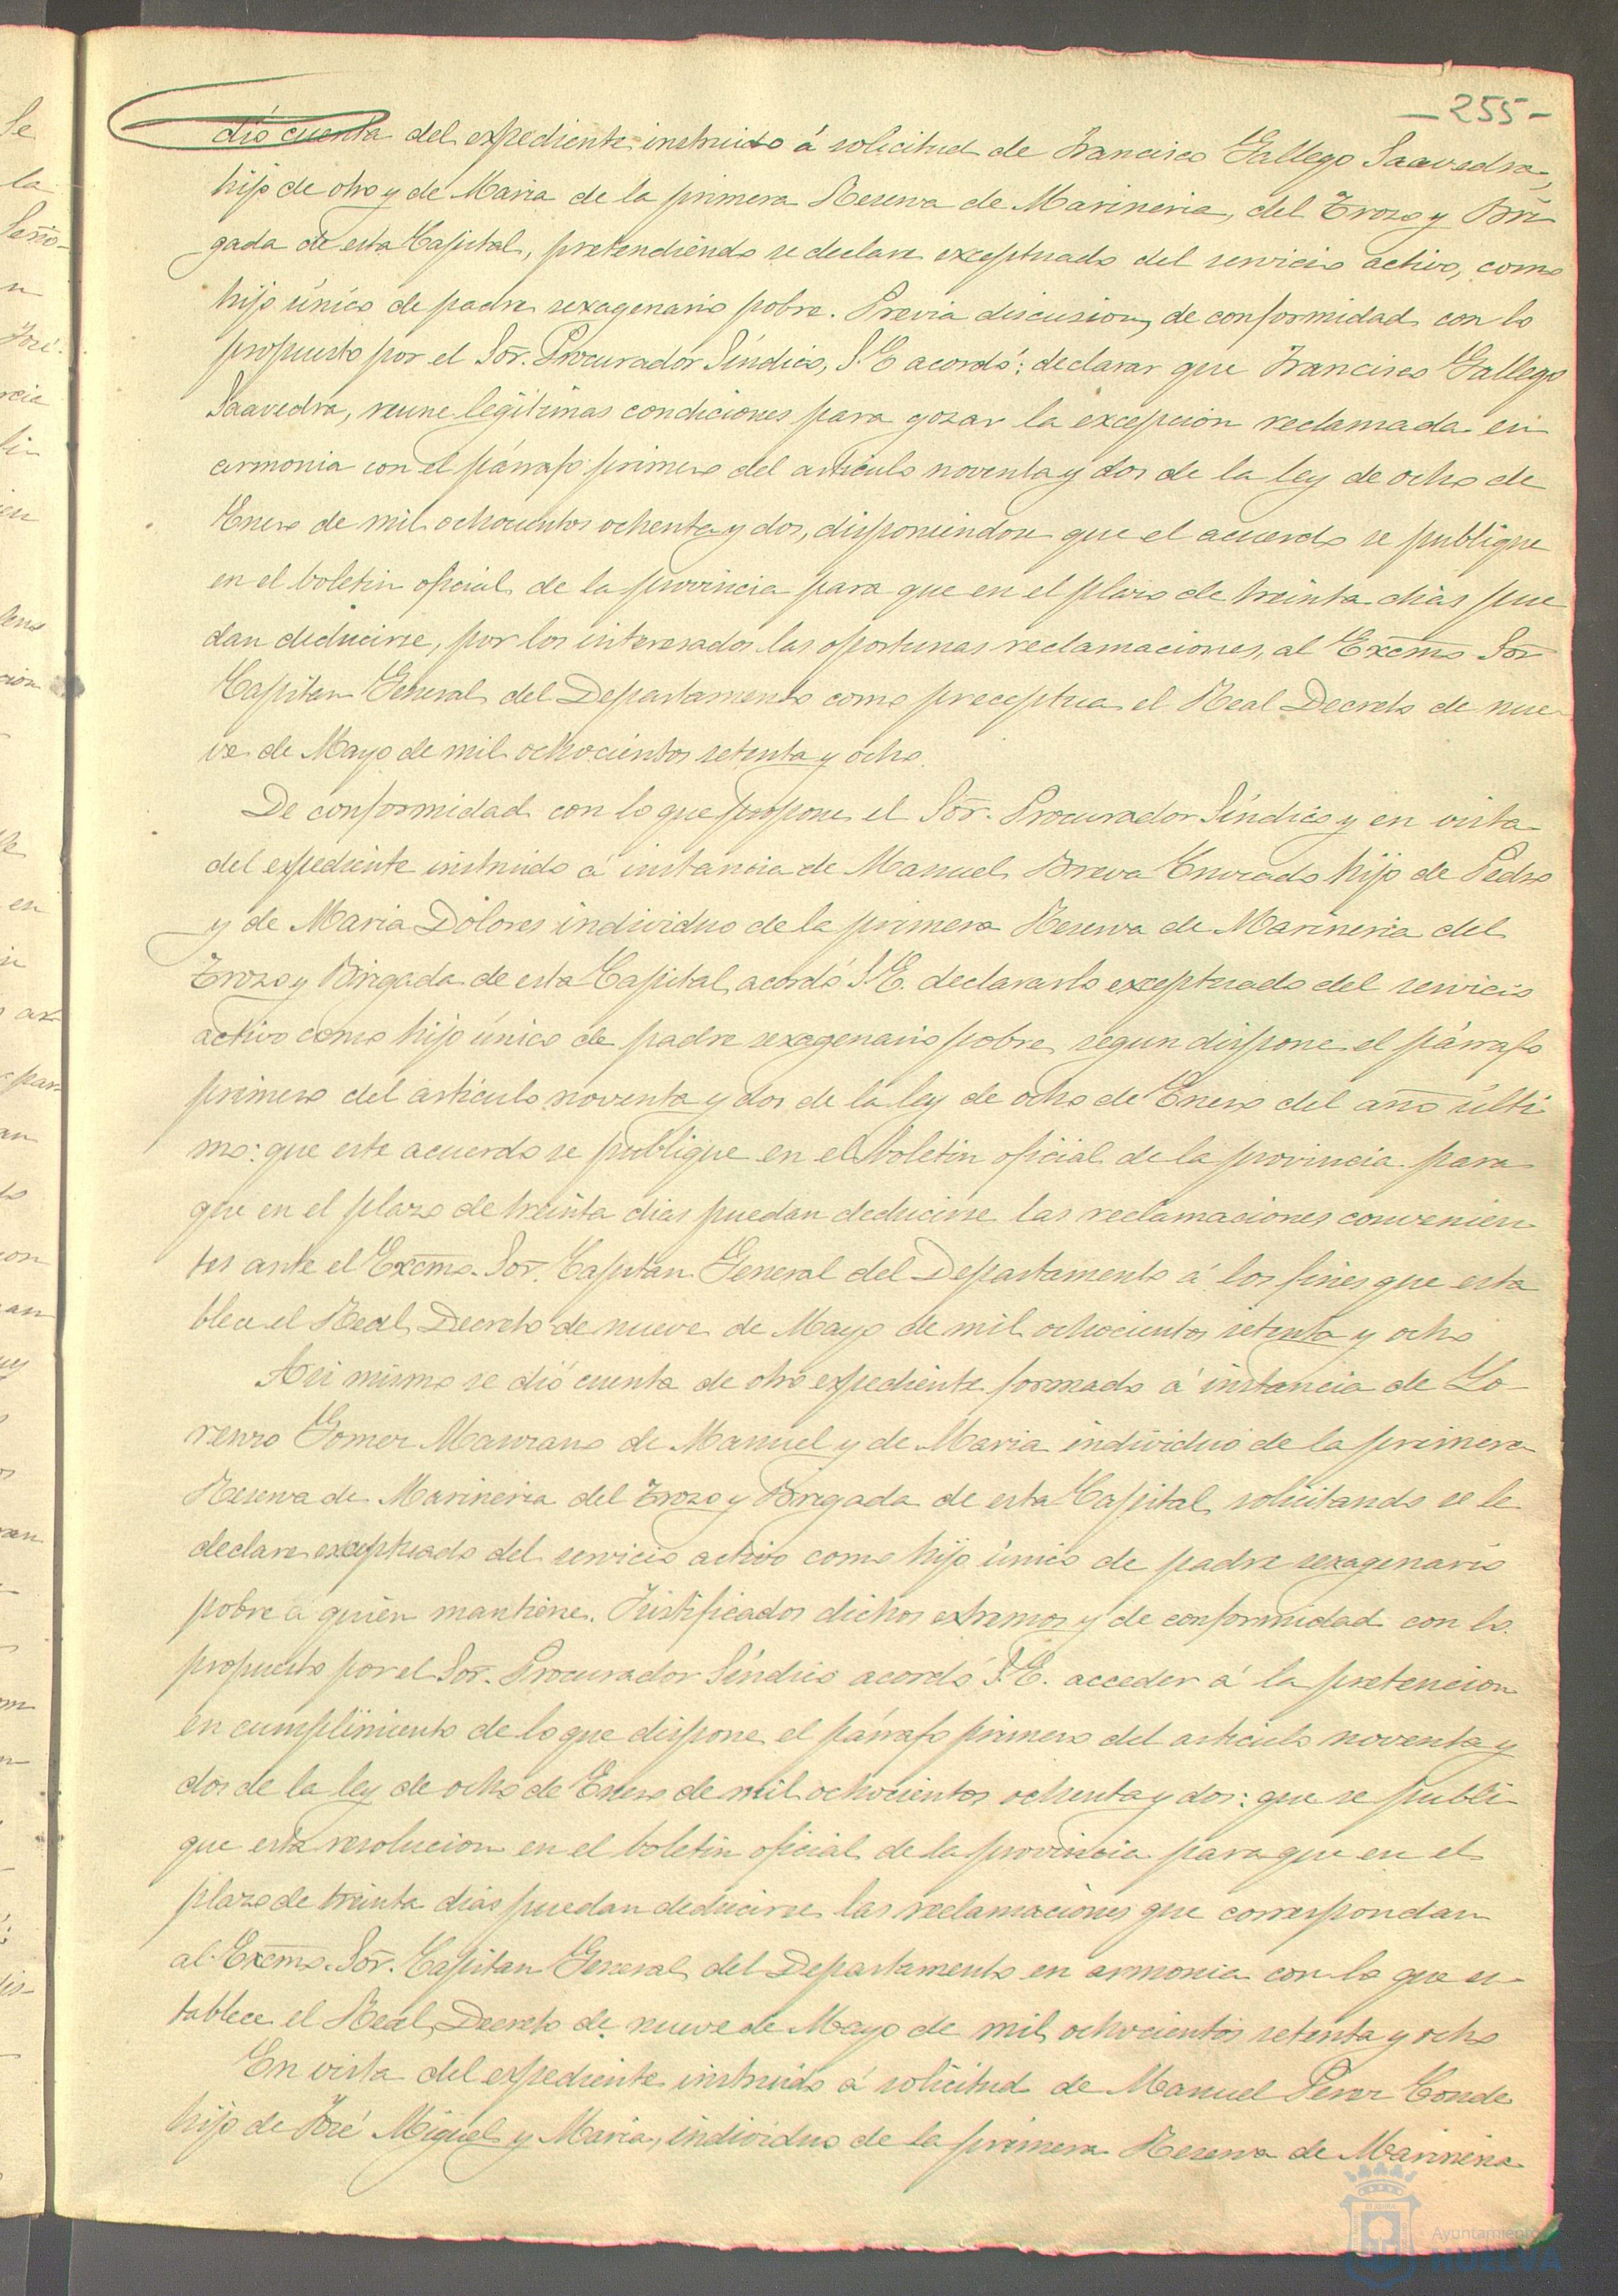 -255-
dió cuenta del expediente instruido á solicitud de Francisco Gallego Saavedra,
hijo de otro y de Maria de la primera Reserva de Marineria, del Trozo y Bri
gada de esta Capital, pretendiendo se declare exceptuado del servicio activo, como
hijo único de padre sexagenario pobre. Previa discusion, de conformidad con lo
propuesto por el Sor. Procurador Síndico, S.E acordó: declarar que Francisco Gallego
Saavedra, reune legítimas condiciones para gozar la excepcion reclamada en
armonia con el párrafo primero del artículo noventa y dos de la ley de ocho de
Enero de mil ochocientos ochenta y dos, disponiendose que el acuerdo se publique
en el boletin oficial de la provincia para que en el plazo de treinta dias pue
dan deducirse, por los interesados las oportunas reclamaciones, al Excmo Sor
Capitan General del Departamento como preceptua el Real Decreto de nue-
ve de Mayo de mil ochocientos setenta y ocho.
De conformidad con lo que propone el Sor. Procurador Síndico y en vista
del expediente instruido á instancia de Manuel Breva hijo de Pedro
y de Maria Dolores individuo de la primera Reserva de Marineria del
Trozo y Brigada de esta Capital, acordó S.E. declararlo exceptuado del servicio
activo como hijo único de padre sexagenario pobre segun dispone el párrafo
primero del artículo noventa y dos de la ley de ocho de Enero del año últi
mo: que este acuerdo se publique en el boletin oficial de la provincia para
que en el plazo de treinta dias puedan deducirse las reclamaciones convenien
tes ante el Excmo. Sor. Capitan General del Departamento á los fines que esta
blece el Real Decreto de nueve de Mayo de mil ochocientos setenta y ocho
Asi mismo se dió cuenta de otro expediente formado á instancia de Lo-
renzo Gomez Manzano de Manuel y de Maria individuo de la primera
Reserva de Marineria del Trozo y Brigada de esta Capital, solicitando se le
declare exceptuado del servicio activo como hijo único de padre sexagenario
pobre á quien mantiene. Justificados dichos extremos y de conformidad con lo
propuesto por el Sor. Procurador Síndico acordó S.E. acceder á la pretencion
en cumplimiento de lo que dispone el párrafo primero del artículo noventa y
dos de la ley de ocho de Enero de mil ochocientos ochenta y dos: que se publi-
que esta resolucion en el boletin oficial de la provincia para que en el
plazo de treinta dias puedan deducirse las reclamaciones que correspondan
al Excmo. Sor. Capitan General del Departamento en armonia con lo que es-
tablece el Real Decreto de nueve de Mayo de mil ochocientos setenta y ocho
En vista del expediente instruido á solicitud de Manuel Perez Conde
hijo de José Miguel y Maria, individuo de la primera Reserva de Marineria
Ayuntamiento
HUELVA